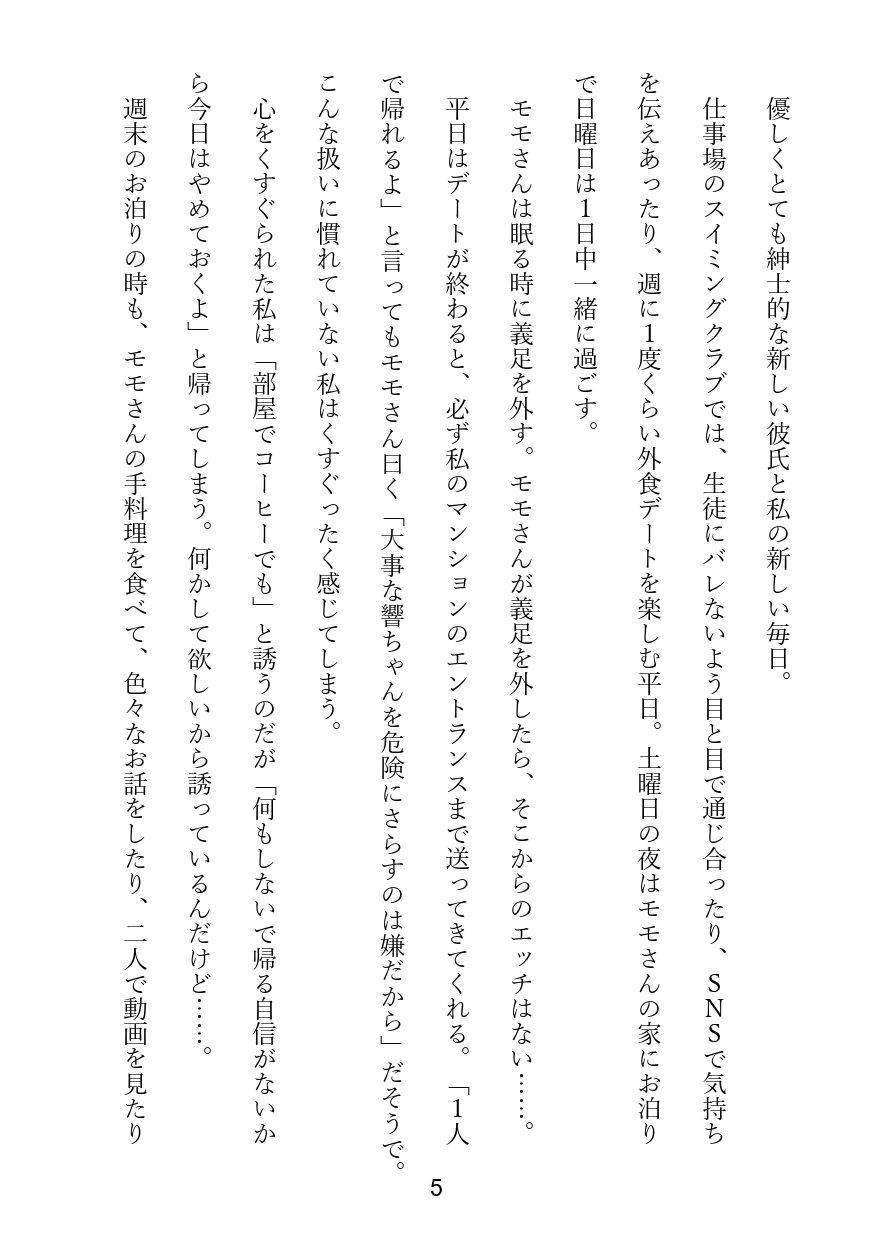 優しくとても紳士的な新しい彼氏と私の新しい毎日。
仕事場のスイミングクラブでは、生徒にバレないよう目と目で通じ合ったり、SNSで気持ち
を伝えあったり、週に1度くらい外食デートを楽しむ平日。土曜日の夜はモモさんの家にお泊り
で日曜日は1日中一緒に過ごす。
モモさんは眠る時に義足を外す。モモさんが義足を外したら、そこからのエッチはない……。
平日はデートが終わると、必ず私のマンションのエントランスまで送ってきてくれる。「1人
で帰れるよ」と言ってもモモさん曰く「大事な響ちゃんを危険にさらすのは嫌だから」だそうで。
こんな扱いに慣れていない私はくすぐったく感じてしまう。
心をくすぐられた私は「部屋でコーヒーでも」と誘うのだが「何もしないで帰る自信がないか
ら今日はやめておくよ」と帰ってしまう。何かして欲しいから誘っているんだけど……。
週末のお泊りの時も、モモさんの手料理を食べて、色々なお話をしたり、二人で動画を見たり
5